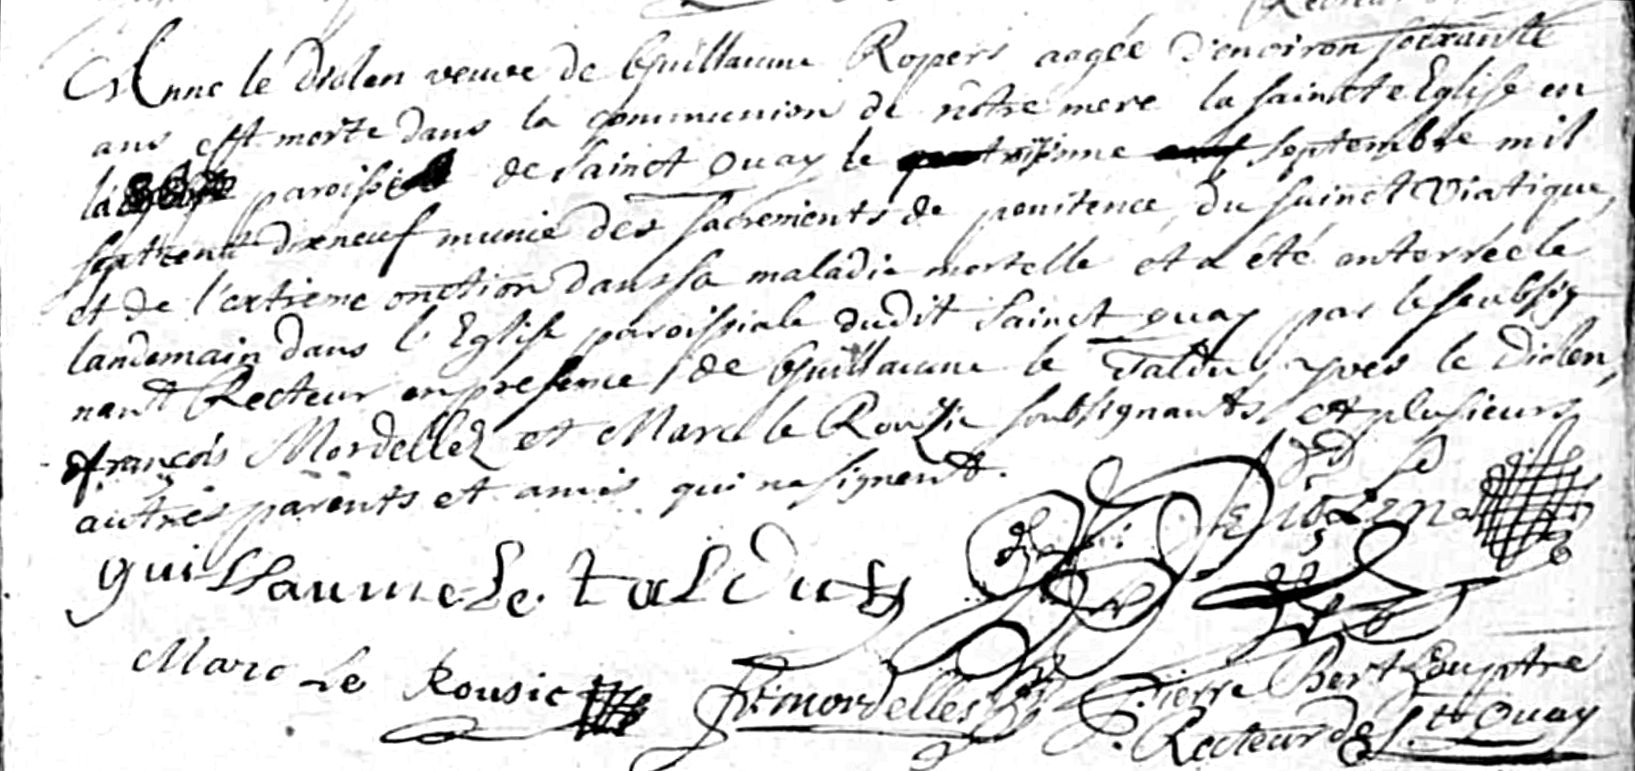 Anne le Diolen veuve de Guillaume Ropers aagée d'environ soixante
ans est morte dans la communion de nôtre mere la saincte Eglise en
la paroisse de Sainct Quay le troisieme septembre mil
sept cent dixneuf munie des sacrements de penitence, du sainct Viatique,
et de l'extreme onction dans sa maladie mortelle et a été enterrée le
landemain dans l'Eglise paroissiale dudit Sainct Quay par le soubsig
nant Recteur en presence de Guillaume le Taldu, yves le Diolen,
françois Mordellez et Marc le Rouzic soubsignants et plusieurs
autres parents et amis qui ne signent.
guillaume Le taldu
Marc Le Rousic
fr mordelles
Pierre ptre
Recteur de St Quay